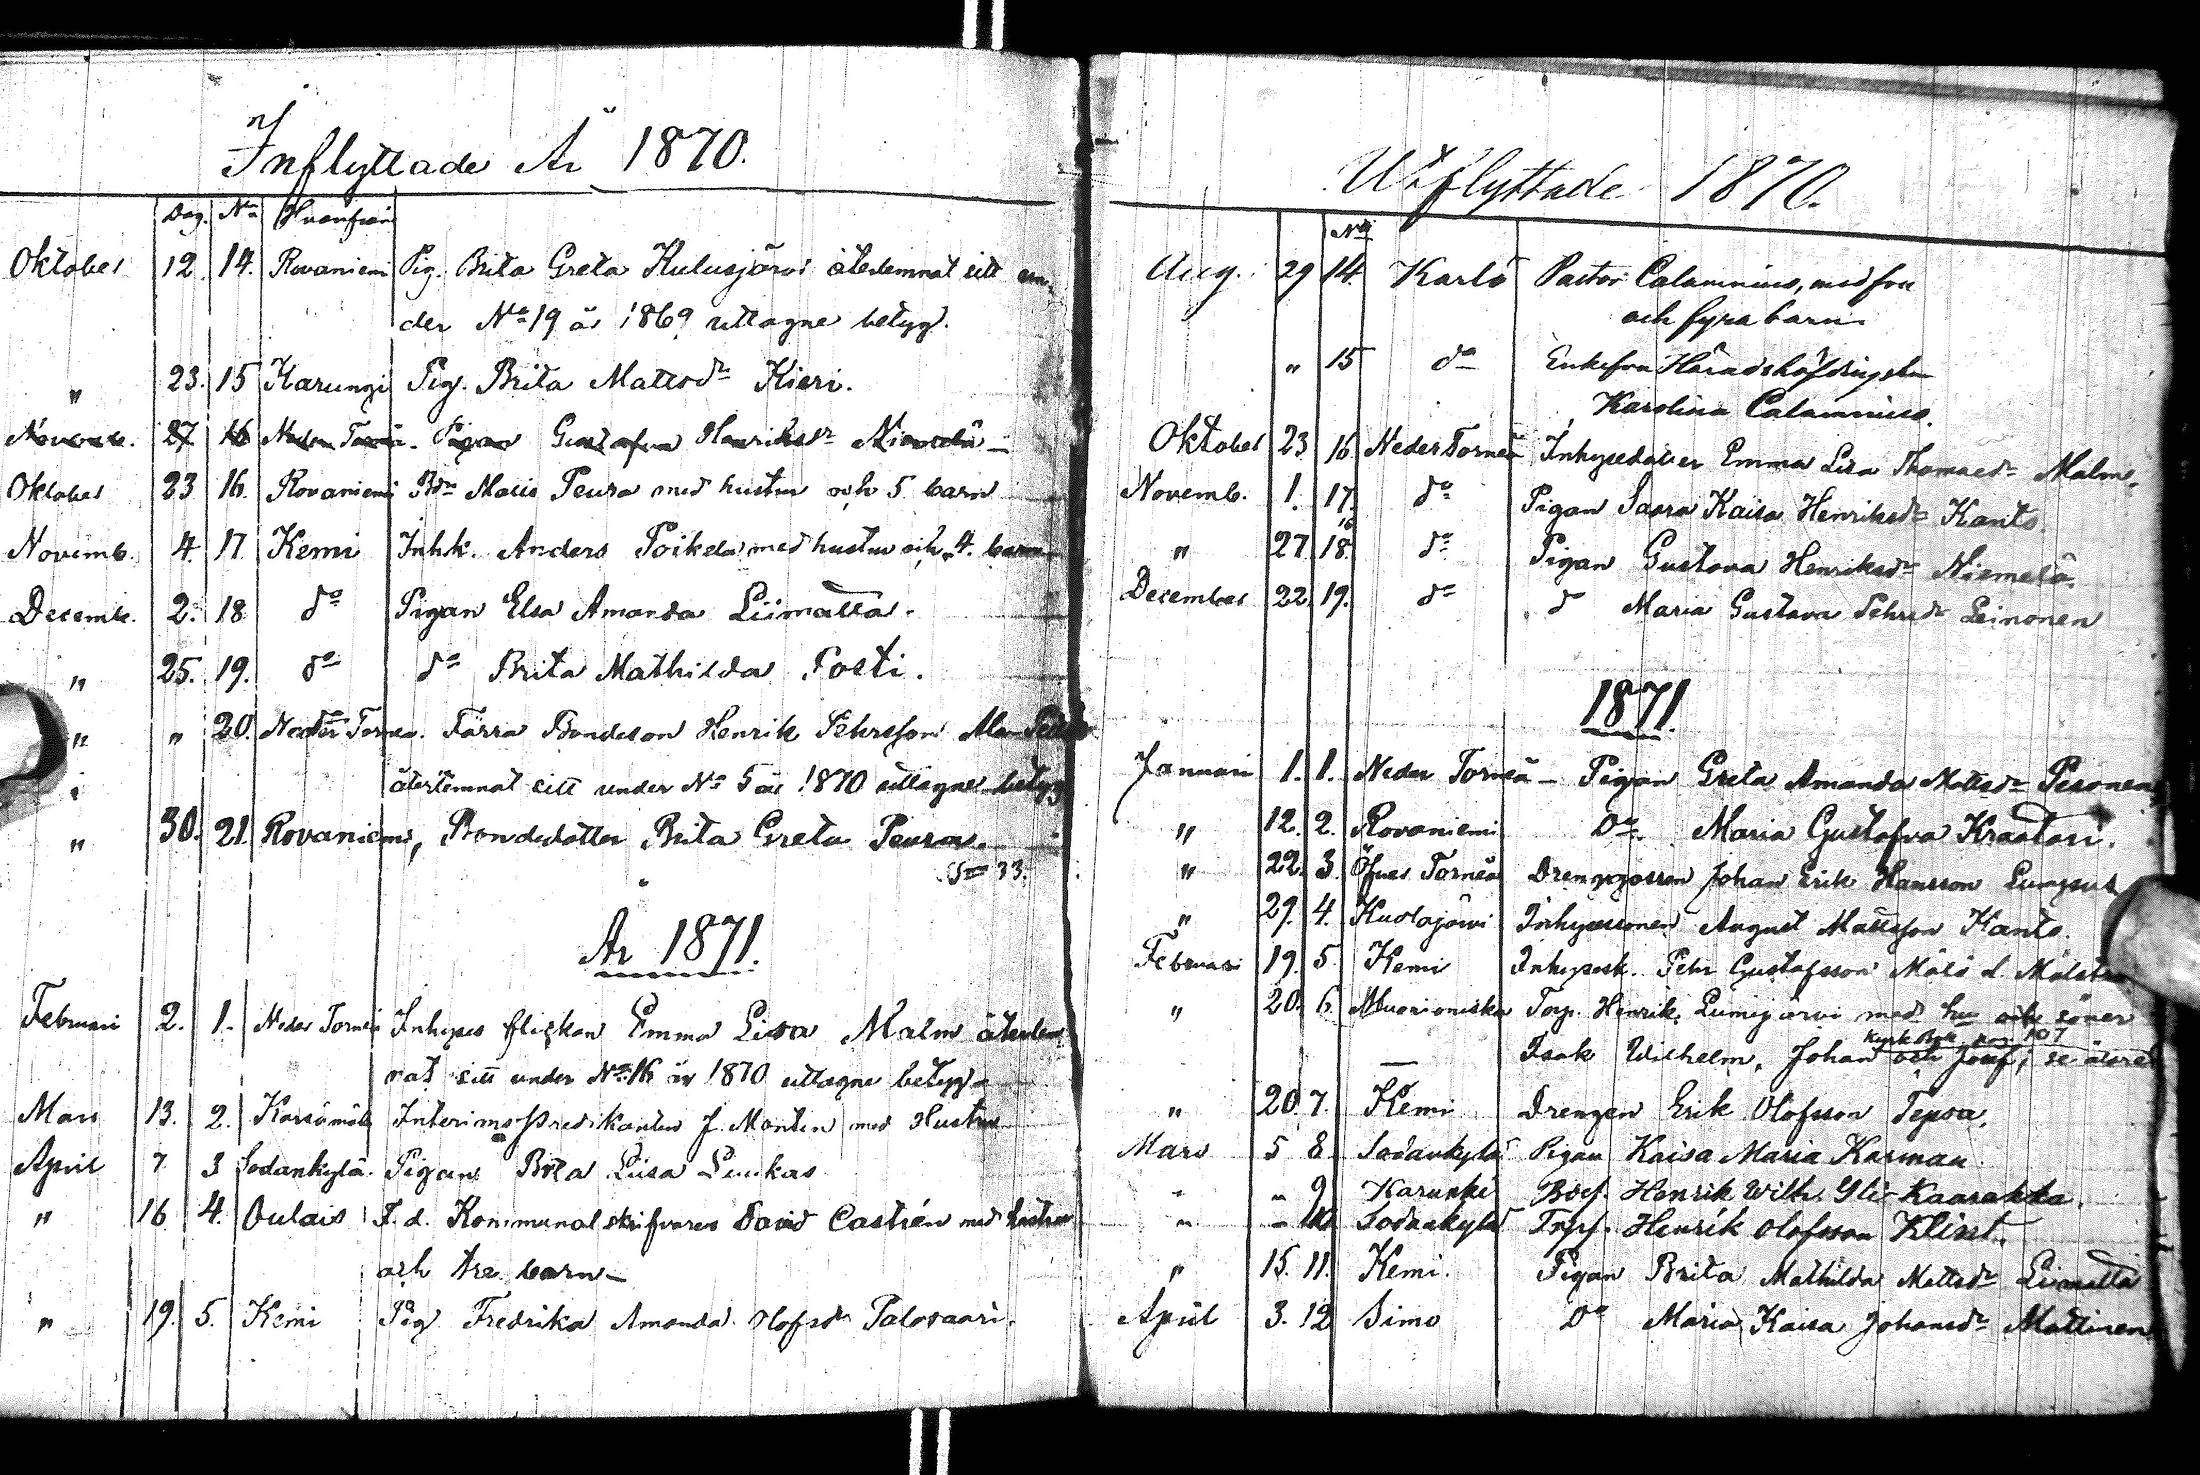 Inflyttade År 1870.
Dag. No Hvarifrån
Oktober 12. 14. Rovaniemi Pig. Brita Greta Kulusjärvi återlemnat sitt un-
der No 19 år 1869 uttagne betyg.
" 23. 15 Karungi Pig. Brita Mattsdr Kieri.
Novemb. 27 16 Neder Torneå. Pigan Gustafva Henriksdr Niemelä —
Oktober 23 16. Rovaniemi Bdn Matts Peura med hustru och 5 barn
Novemb. 4. 17. Kemi Inhk. Anders Poikela med hustru och 4. barn
Decemb. 2. 18 do Pigan Elsa Amanda Liimatta.
" 25. 19. do do Brita Mathilda Posti.
" " 20. Neder Torneå. Förra Bondeson Henrik Pehrsson
återlemnat sitt under No 5 år 1870 uttagne betyg
" 30. 21. Rovaniemi, Bondedotter Brita Greta Peura.
33.
År 1871.
Februari 2. 1. Neder Torneå Inhyses flickan Emma Lisa Malm återlem
nat sitt under No 16 år 1870 uttagne betyg
Mars 13. 2. Kärsämäki Interims Predikanten J. Montin med Hustru
April 7 3 Sodankylä. Pigan Brita Liisa Luukas
" 16 4. Oulais F. d. Kommunalskrifvaren David Castrén med hustru
och tre barn —
" 19. 5. Kemi Pig Fredrika Amanda Olofsdr Palosaari.
Utflyttade 1870.
No
Aug. 29 14. Karlö Pastor Calamnius, med fru
och fyra barn
" 15 do Enkefru Häradshöfdingskan
Karolina Calamnius.
Oktober 23 16. Neder Torneå Inhysesdotter Emma Lisa Thomasdr Malm.
Novemb. 1. 17. do Pigan Saara Kaisa Henriksdr Kanto.
16
" 27. 18. do Pigan Gustava Henriksdr Niemelä.
December 22. 19. do d Maria Gustava Pehrsdr Leinonen
1871.
Januari 1. 1. Neder Torneå — Pigan Greta Amanda Mattsdr Pesonen
" 12. 2. Rovaniemi Do Maria Gustafva Kraatari.
" 22. 3. Öfver Torneå Drenggossen Johan Erik Hansson
" 29. 4. Kuolajärvi Inhysessonen August Mattsson Kanto.
Februari 19. 5. Kemi Inhysesk. Pehr Gustafsson
" 20. 6. Muonioniska Torp. Henrik Lumijärvi med hu och söner
107
— Isak Wilhelm, Johan och Josef, se
" 20. 7. Kemi Drengen Erik Olofsson Tepsa.
Mars 5 8. Sodankylä Pigan Kaisa Maria Karman
" " 9 Karunki Bdef. Henrik Wilh. Yli Kaarakka.
" " 10 Sodankylä Trpf. Henrik Olofsson Klint.
" 15. 11. Kemi. Pigan Brita Mathilda Mattsdr Liimatta
April 3. 12 Simo Do Maria Kaisa Johansdr Mattinen